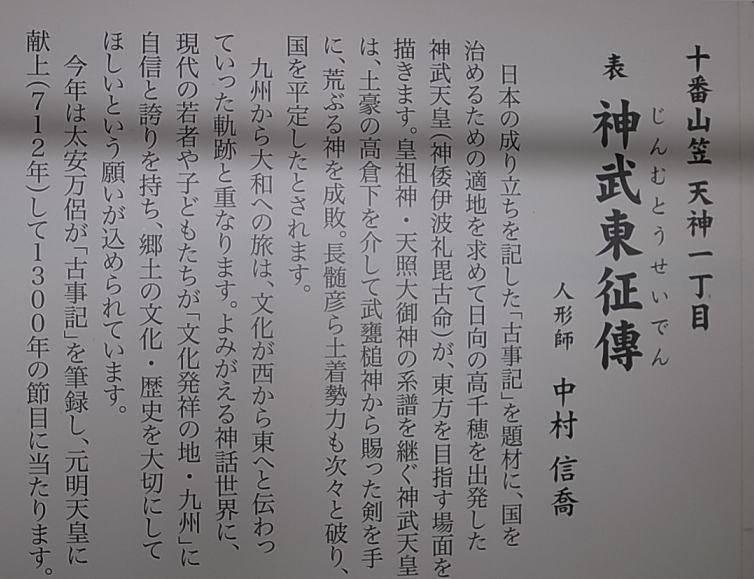 十番山笠 天神一丁目
表 神武東征傳
じんむとうせいでん
人形師 中村 信喬
日本の成り立ちを記した「古事記」を題材に、国を
治めるための適地を求めて日向の高千穂を出発した
神武天皇(神倭伊波礼毘古命)が、東方を目指す場面を
描きます。皇祖神・天照大御神の系譜を継ぐ神武天皇
は、土豪の高倉下を介して武甕槌神から賜った剣を手
に、荒ぶる神を成敗。長髄彦ら土着勢力も次々と破り、
国を平定したとされます。
九州から大和への旅は、文化が西から東へと伝わっ
ていった軌跡と重なります。よみがえる神話世界に、
現代の若者や子どもたちが「文化発祥の地・九州」に
自信と誇りを持ち、郷土の文化・歴史を大切にして
ほしいという願いが込められています。
今年は太安万侶が「古事記」を筆録し、元明天皇に
献上(712年)して1300年の節目に当たります。